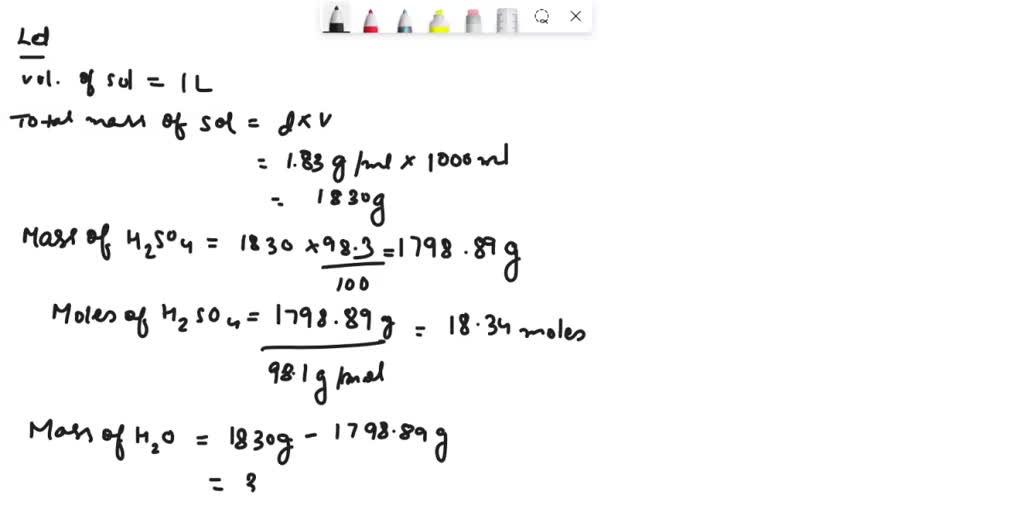 Ld
vol. of sol = 1L
Total mass of sol = d×V
= 1.83 g/ml × 1000 ml
= 1830g
Mass of H2SO4 = 1830 × 98.3/100 = 1798.89 g
Moles of H2SO4 = 1798.89 g / 98.1 g/mol = 18.34 moles
Mass of H2O = 1830g - 1798.89 g
= 3